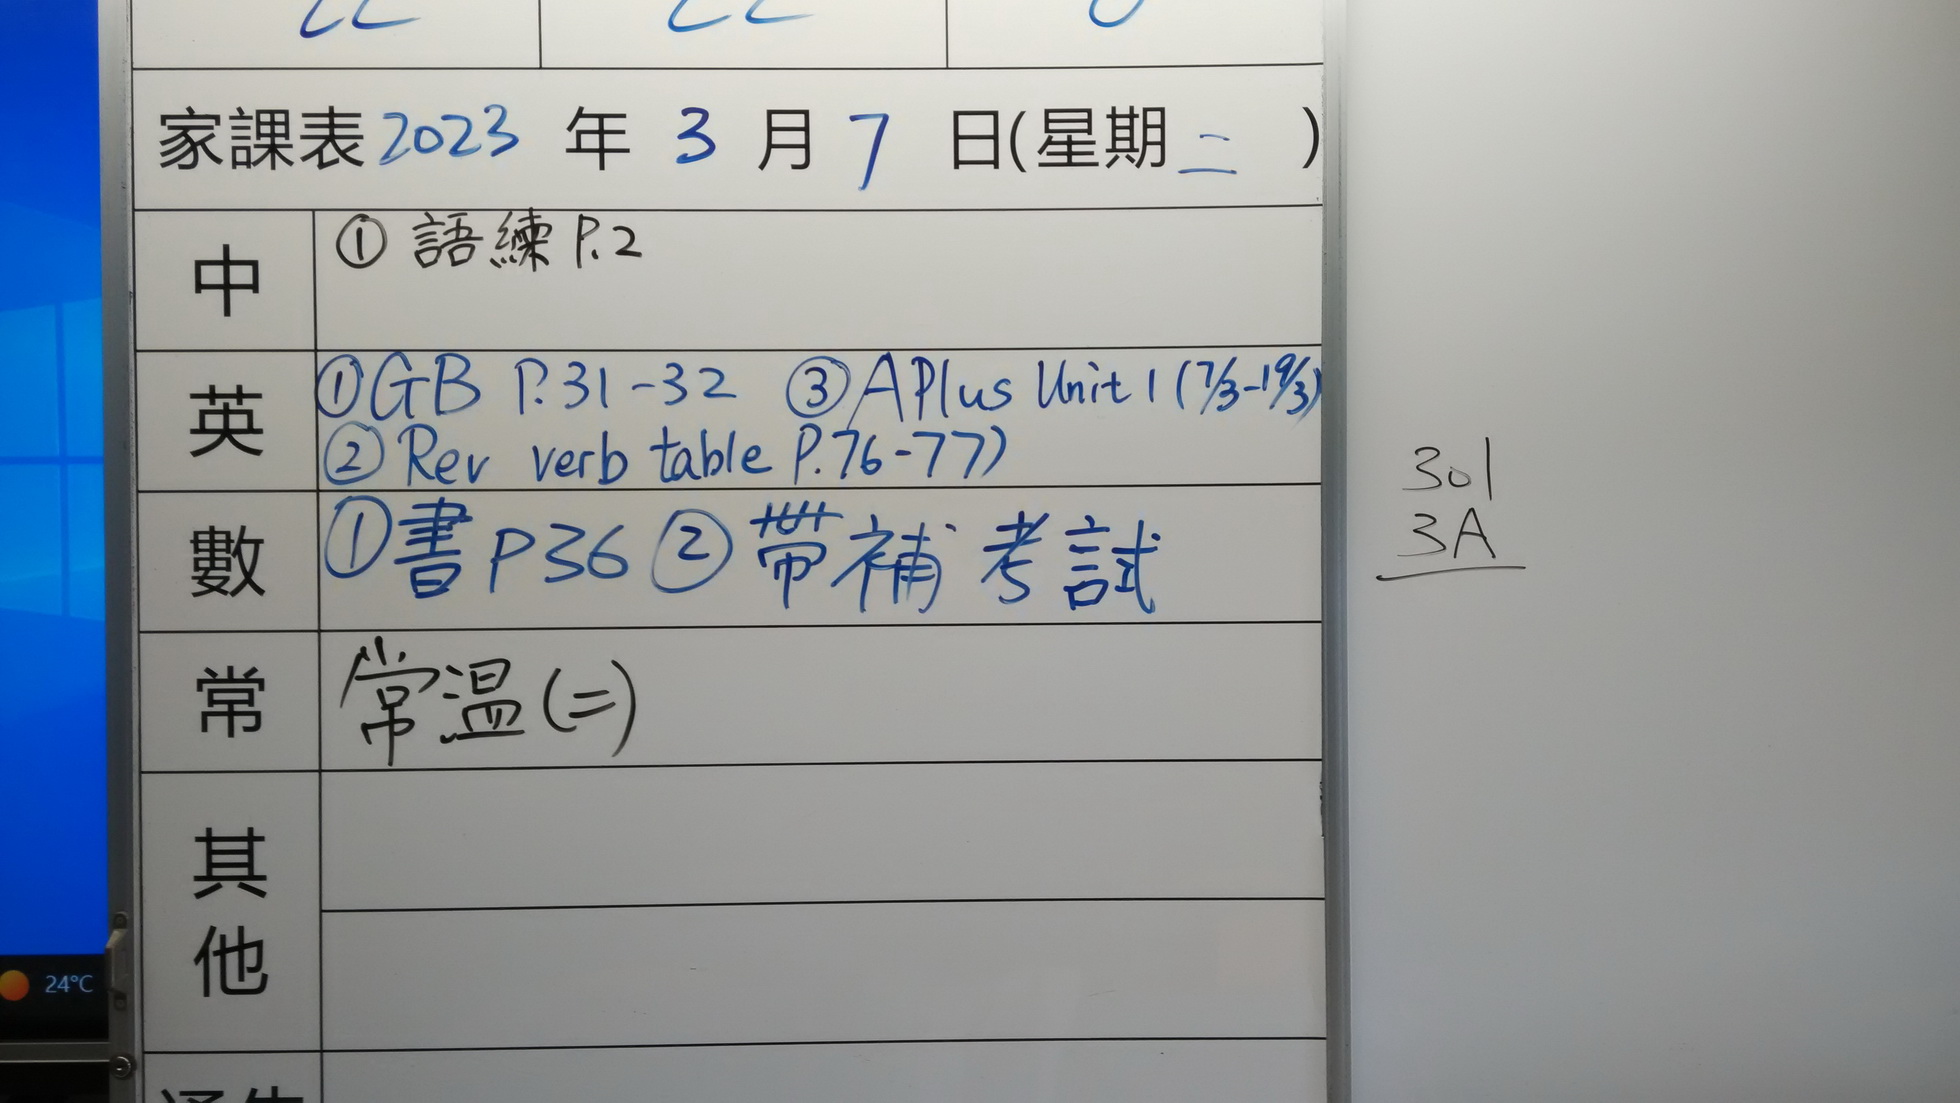 家課表 2023 年 3 月 7 日(星期二)
中
① 語練 P.2
英
① GB P.31-32 ③ A Plus Unit 1 (7/3-19/3)
② Rev verb table P.76-77)
數
① 書 P36 ② 帶補考試
常
常溫(二)
其他
301
3A
24°C